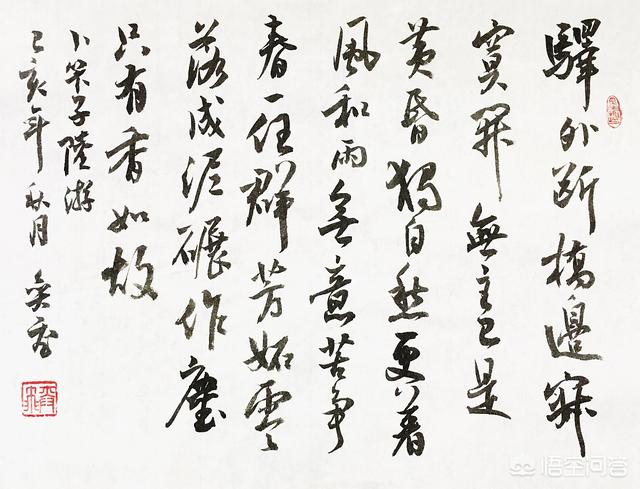 驛外斷橋邊寂
寞開無主已是
黄昏獨自愁更著
風和雨無意苦爭
春一任群芳妬零
落成泥碾作塵
只有香如故
卜算子陸游
己亥年秋月
悟空问答